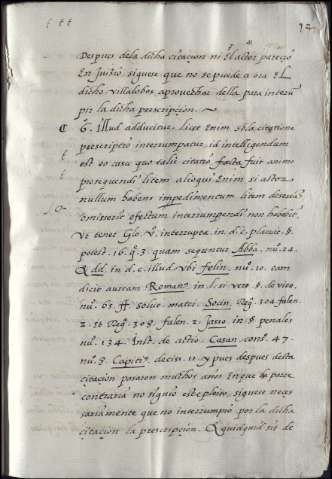 t t t
72
Despues dela dicha citacion ni el actor pareçio
En Juiçio siguese que no se puede a ora El
dicho villalobos aprovechar della para interū
pir la dicha prescripçion. ~
6. Illud adducitur, licet Enim citatione
prescriptio interrumpatur, id intelligendum
est eo casu quo talis citatio facta fuit animo
prosequendi litem alioqui Enim si actor
nullum habens impedimentum litem
omitteret efectum interrumpendi non habebit,
Ut tenet Glo. V. interrupta in. d. c. placuit. §.
potest. 16. q. 3. quam sequuntur Abba. nu. 14.
& dd. in d. c. illud ubi Felin. nu. 10. eam
dicit auream Roman. in l. si vero §. de viro.
nu. 65. ff solut. matri. Socin. Reg. 104 falen.
2. et Reg. 308. falen. 2. Jaso. in. §. penales
nu. 134. Inst. de actio. Casan. cons. 47.
nu. 5. Capiti. decis. 11. y pues despues desta
citacion pasaron muchos anos En que la parte
contraria no siguio este pleito, siguese neçe
sariamente que no interrumpio por la dicha
citacion la prescripçion. & quidquid sit de